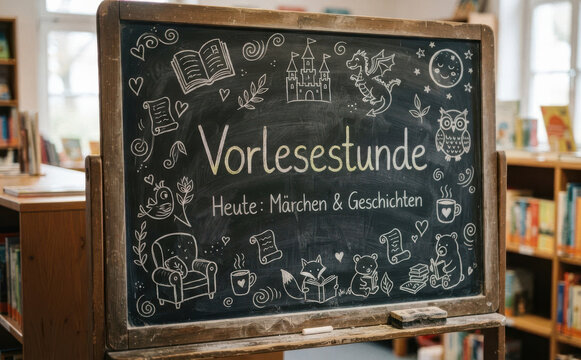 Vorlesestunde
Heute: Märchen & Geschichten